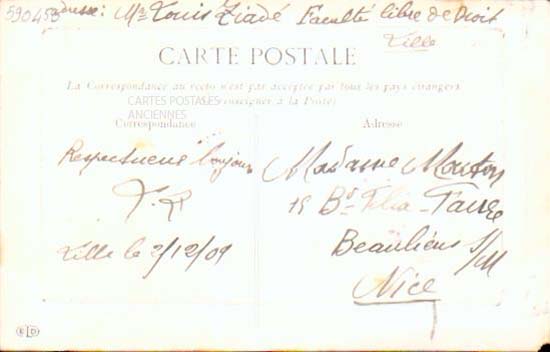 590453 adresse: Mr Louis Ziadé Faculté libre de Droit
Lille
CARTE POSTALE
La Correspondance au recto n'est pas acceptée par tous les pays étrangers
(Se renseigner à la Poste)
CARTES POSTALES
ANCIENNES
Correspondance
Respectueux bonjour
Lille le 2/12/09
Adresse
Madame Mouton
15 Bd Félix-Faure
Beaulieu s/M
Nice
ELD